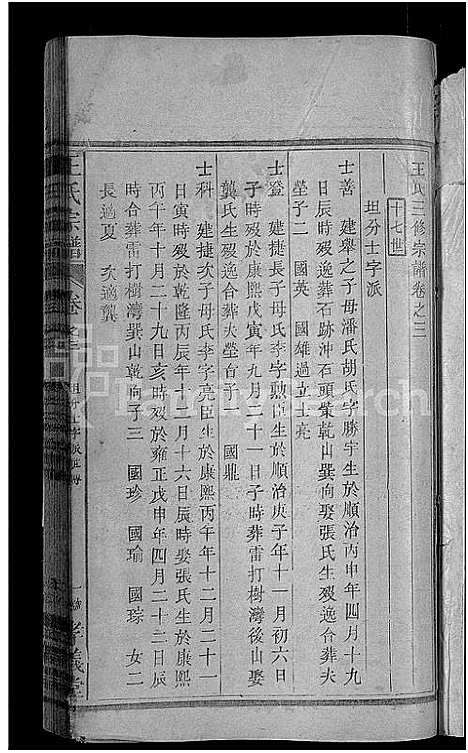 王氏三修宗譜卷之三
十七世
坦分士字派
士善 建舉之子母潘氏胡氏字勝宇生於順治丙申年四月十九
日辰時歿逸葬石跡沖石頭柴乾山巽向娶張氏生歿逸合葬夫
塋子二 國英 國雄過立士亮
士登 建捷長子母氏李字勲臣生於順治庚子年十一月初六日
子時歿於康熙戊寅年九月二十一日子時葬雷打樹灣後山娶
龔氏生歿逸合葬夫塋育子一 國鼎
士科 建捷次子母氏李字亮臣生於康熙丙午年十二月二十一
日寅時歿於乾隆丙辰年十二月十六日辰時娶張氏生於康熙
丙午年十月二十九日亥時歿於雍正戊申年四月二十三日辰
時合葬雷打樹灣巽山乾向子三 國珍 國瑜 國琮 女二
長適夏 次適龔
王氏宗譜
卷之三
坦分士字派
孝義堂